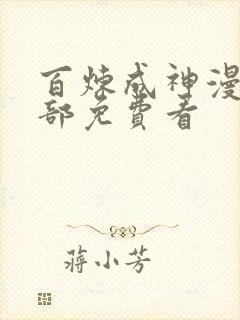 百炼成神漫
部免费看
蒋小芳